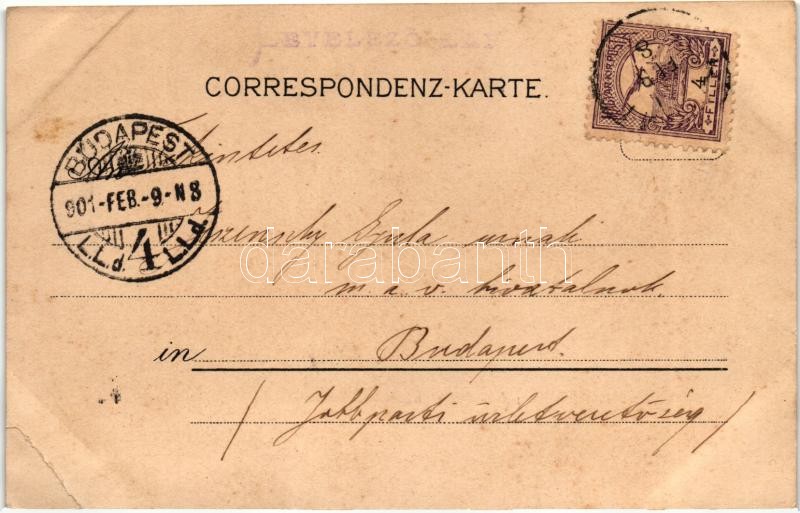 LEVELEZŐ-LAP
CORRESPONDENZ-KARTE.
MAGYAR KIR. POSTA
4 FILLÉR
BUDAPEST
901-FEB.-9-N8
4
I.I.d. I.I.d.
Tekintetes
Gyula urnak
m. á. v. hivatalnok.
in Budapest.
/ Jobbparti üzletvezetőség /
darabanth